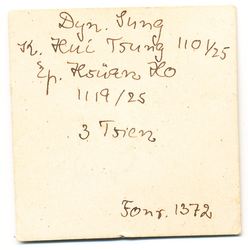 Dyn. Sung
K. Hui Tsung 1101/25
Ep. Hsüan Ho
1119/25
3 Tsien
Fonr. 1372